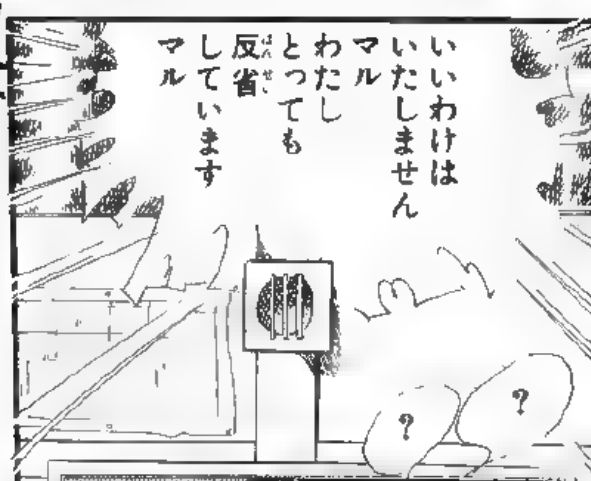 いいわけは
いたしません
マル
わたし
とっても
反省
しています
マル
?
?